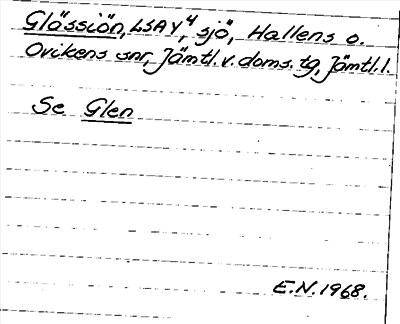 Glässjön, LSA Y⁴, sjö, Hallens o.
Ovikens snr, Jämtl. v. doms. tg, Jämtl. l.
Se Glen
E.N. 1968.